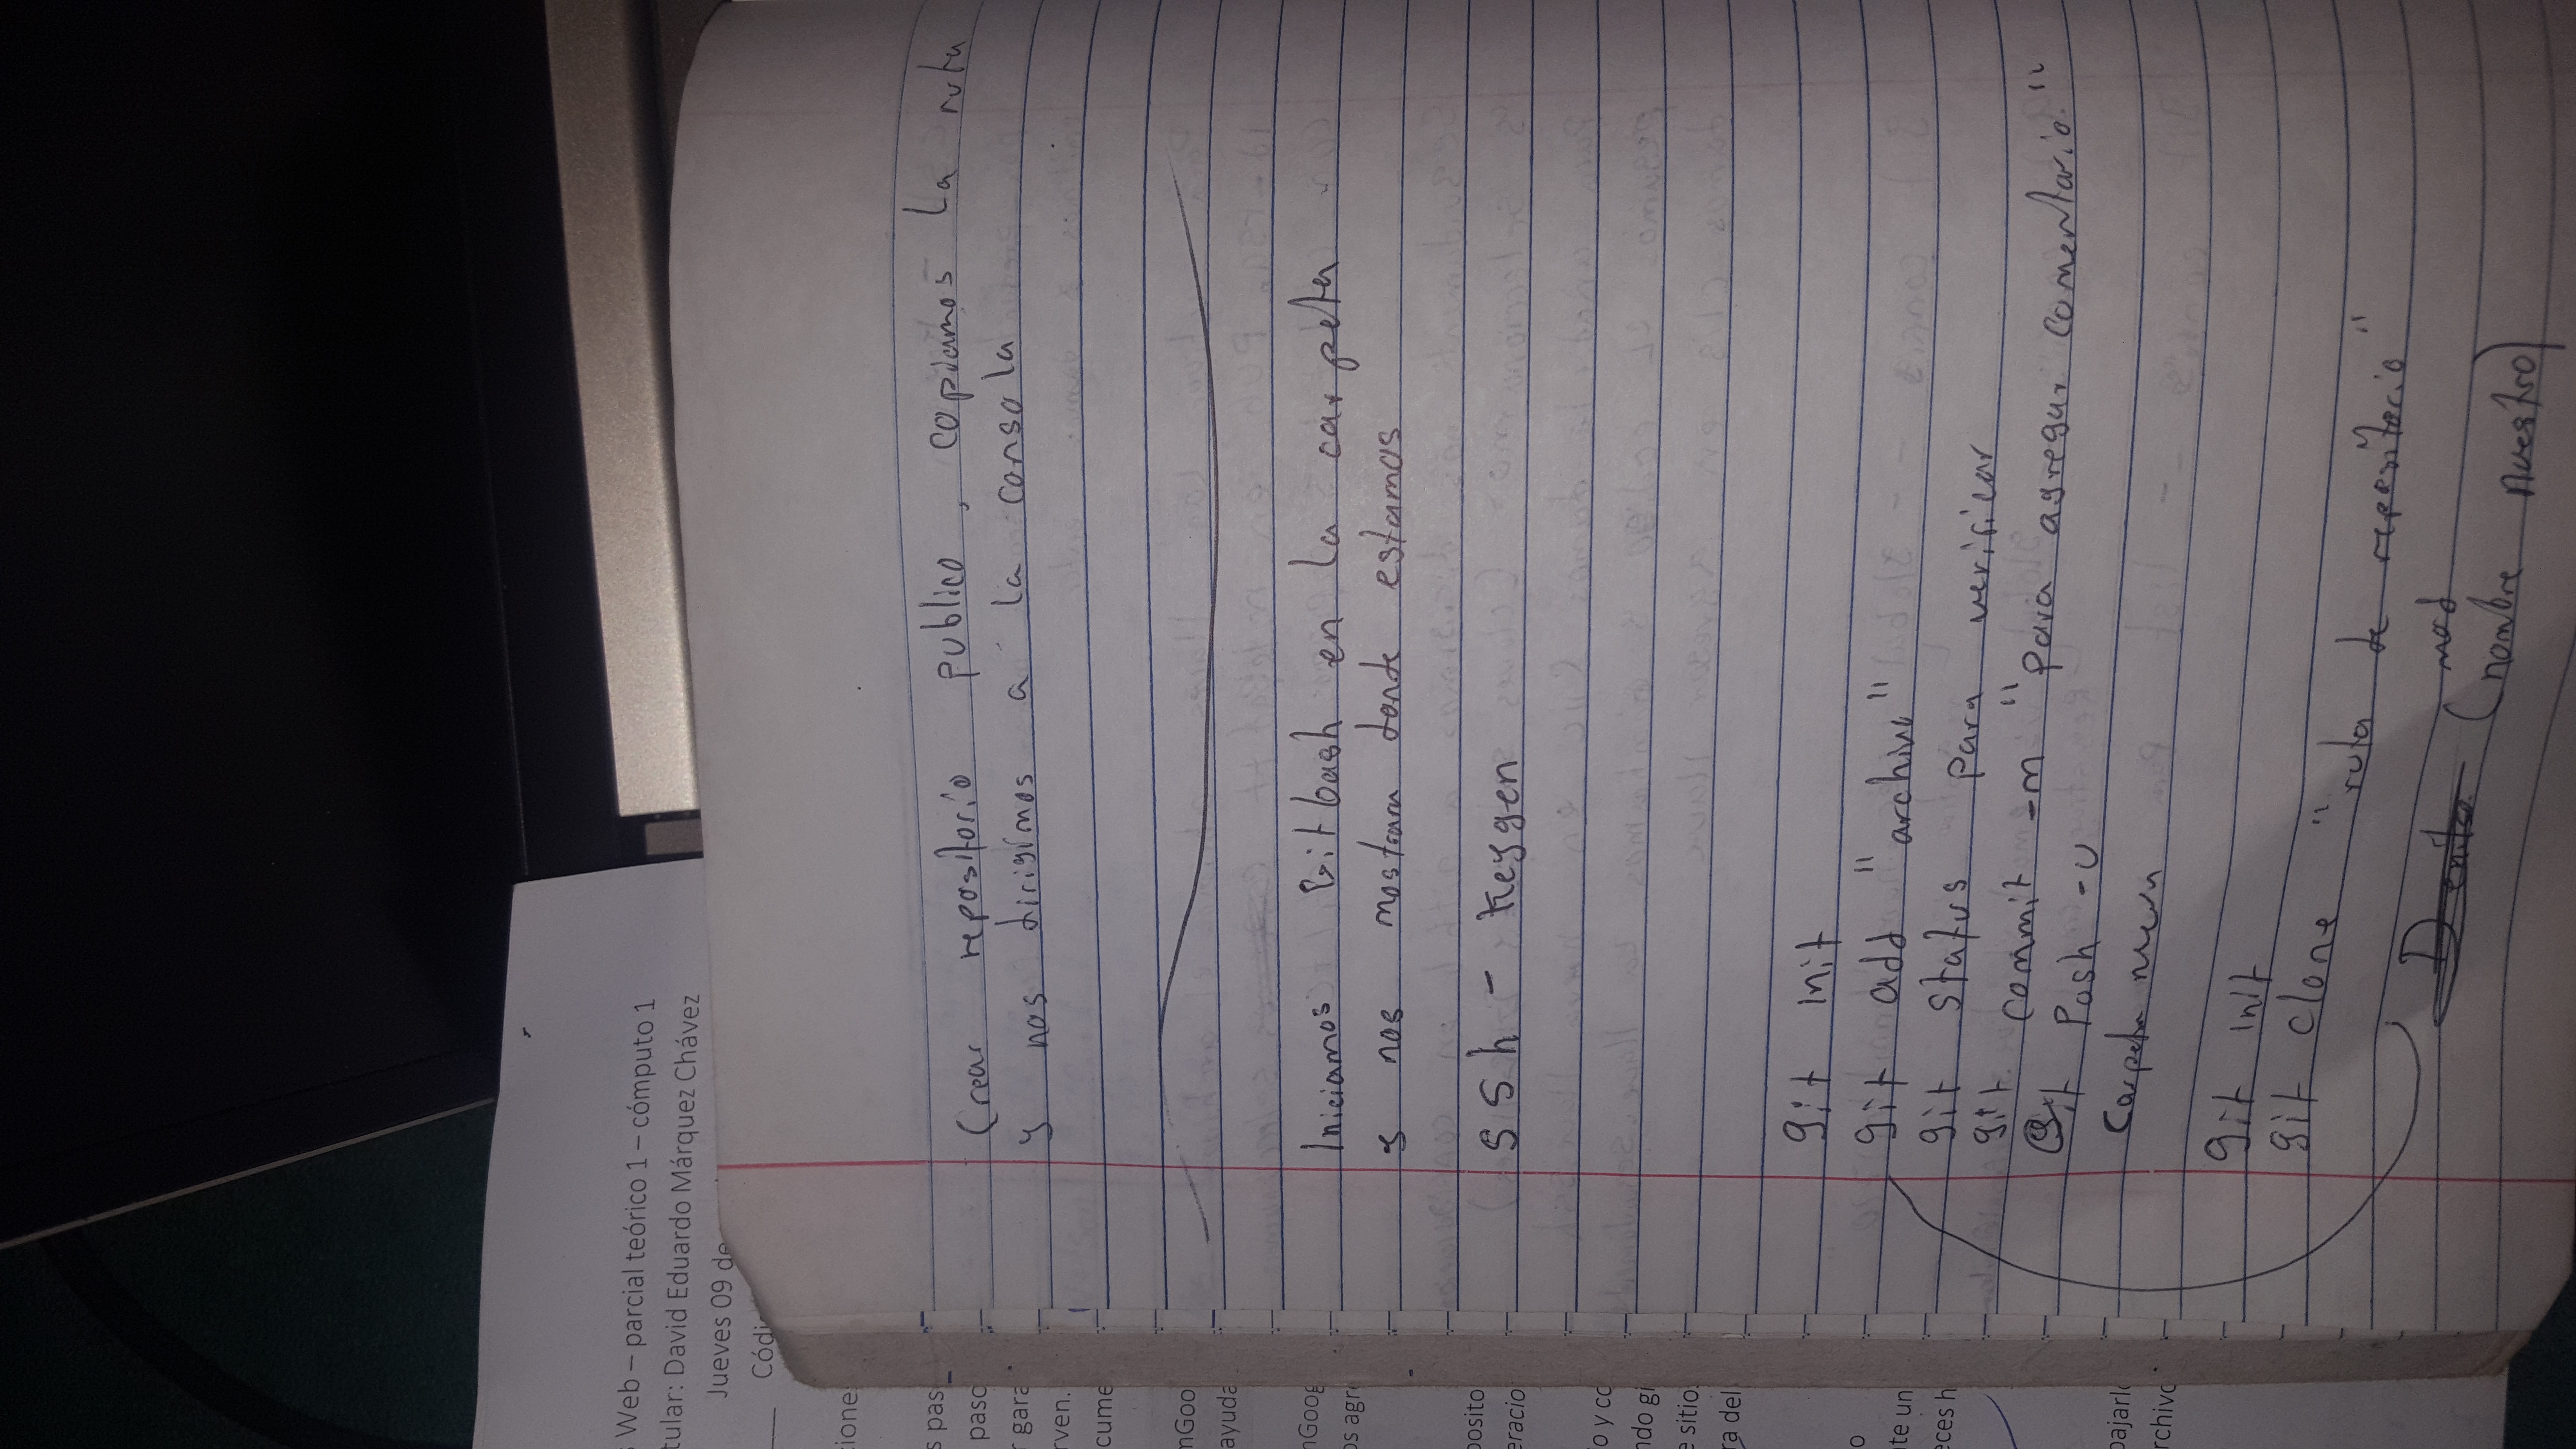 s Web – parcial teórico 1 – cómputo 1
tular: David Eduardo Márquez Chávez
Jueves 09 de
Códi
cione
s pas
paso
r gara
rven.
cume
mGoo
ayuda
nGoog
os agr
posito
eracio
o y co
ndo gi
e sitio
ra del
o
te un
eces h
bajarlo
rchivo
Crear repositorio publico, copiamos la ruta
y nos dirigimos a la consola
Iniciamos Gitbash en la carpeta
y nos mostrara donde estamos
ssh - keygen
git init
git add "archivo"
git status para verificar
git commit -m "para agregar comentario"
Git Push -u
Carpeta nueva
git init
git clone "ruta de repositorio"
mod
(nombre nuestro)